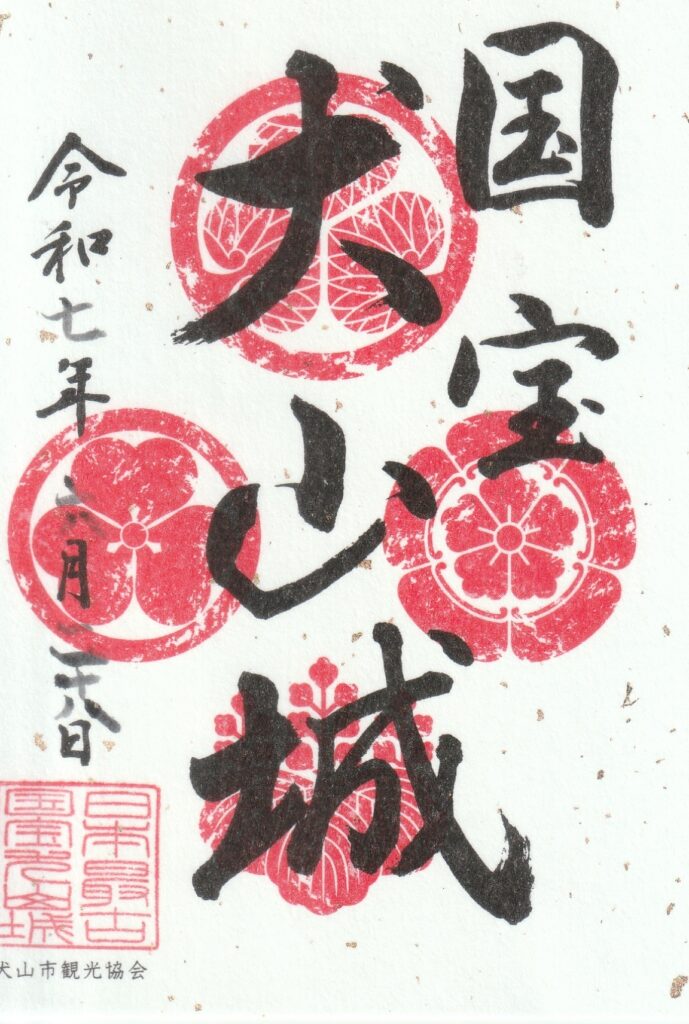 国宝
犬山城
令和七年六月二十八日
日本最古
国宝犬山城
犬山市観光協会